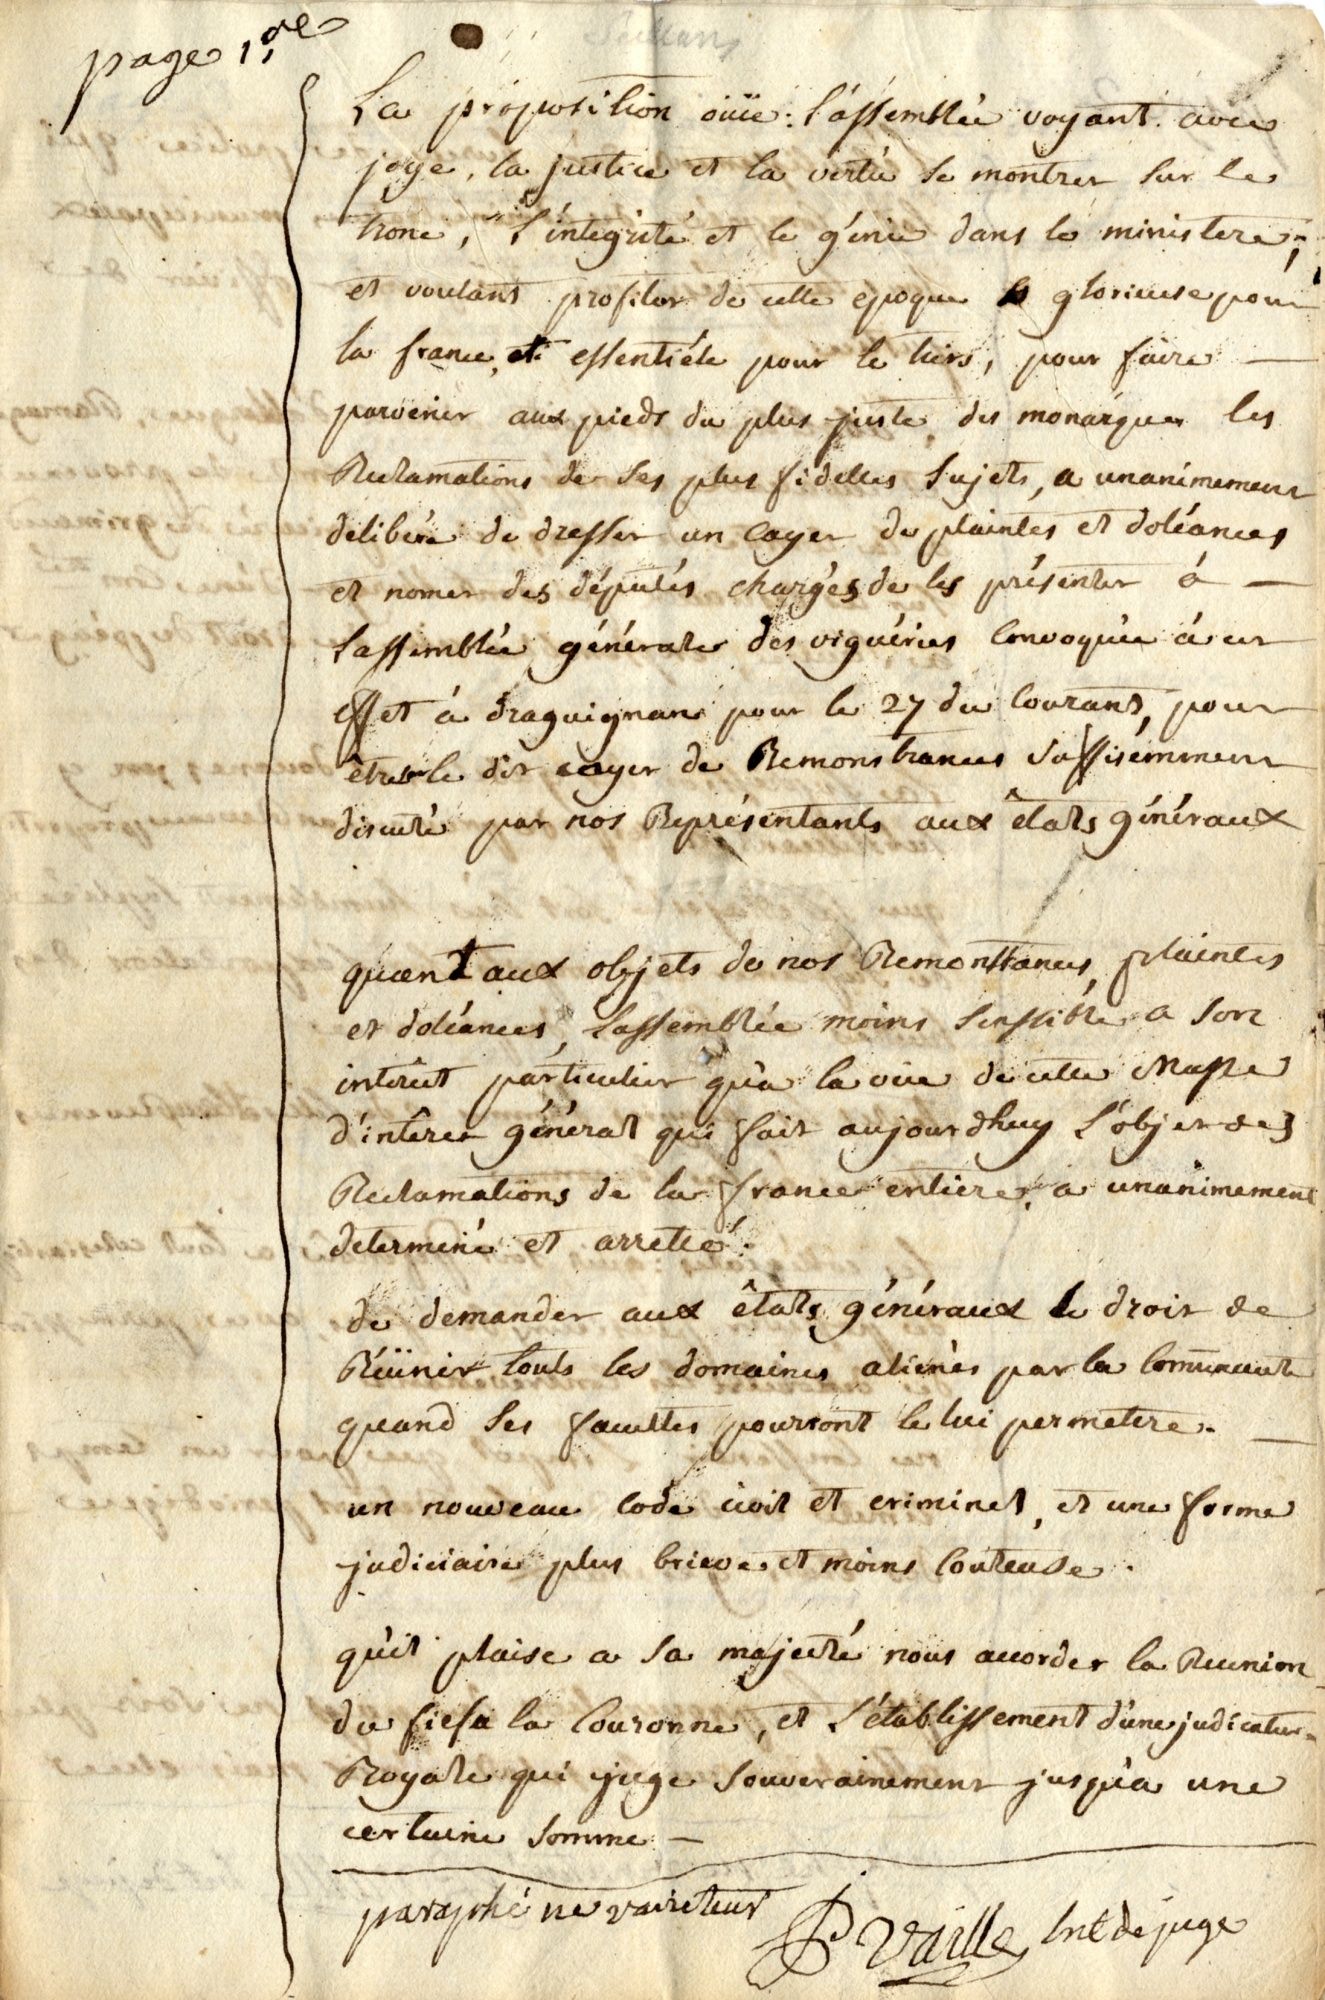 page 1.re
Seillans
La proposition oüie : l'assemblée voyant avec
joye, la justice et la vertu se montrer sur le
trone, l'intégrité et le génie dans le ministere,
et voulant profiter de cette epoque si glorieuse pour
la france, et essentiéle pour le tiers, pour faire —
parvenir aux pieds du plus juste des monarques les
Reclamations de ses plus fidelles sujets, a unanimement
déliberé de dresser un cayer de plaintes et doléances
et nomer des députés chargés de les présenter á —
l'assemblée générale des viguéries convoquée á cet
effet á draguignan pour le 27 du courant, pour
être le dit cayer de Remonstrances suffisemment
discuté par nos Représentants aux êtats généraux
quant aux objets de nos Remontrances, plaintes
et doléances, l'assemblée moins sensible a son
intérêt párticulier qu'a la vüe de cette Masse
d'intêret général qui fait aujourdhuy l'objet des
Reclamations de la france entiere, a unanimement
determiné et arretté.
de demander aux êtats généraux le droit de
Réünir touts les domaines aliénés par la comunauté
quand ses facultés pourront le lui permetre. —
un nouveau code civil et criminel, et une forme
judiciaire plus brieve et moins couteuse.
qu'il plaise a sa majesté nous accorder la Reunion
du fief a la Couronne, et l'établissement d'une judicature
Royale qui juge souverainement jusqu'a une
certaine somme —
paraphé ne varietur
Vaille Lnt de juge